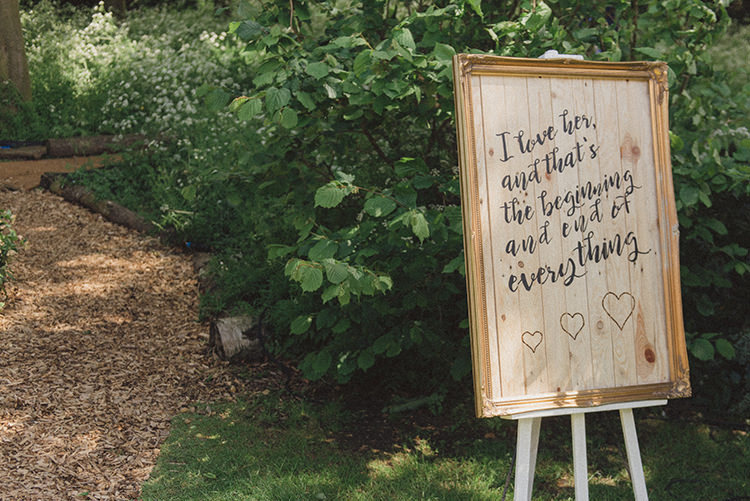 I love her,
and that's
the beginning
and end of
everything